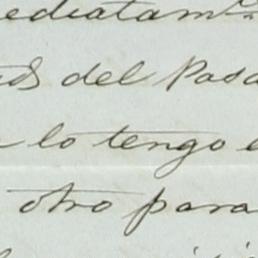 ediatamte
ds del Pasa
lo tengo
otro para